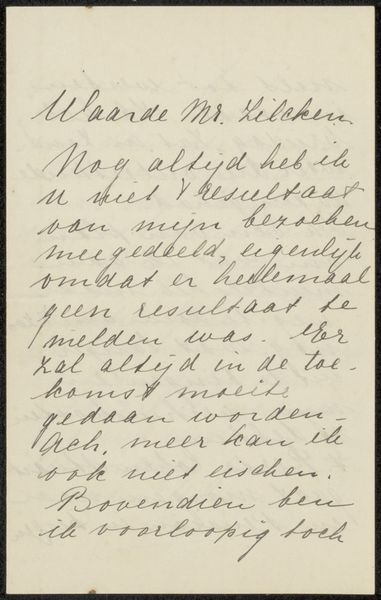 Waarde Mr. Zilcken
Nog altijd heb ik
u niet 't resultaat
van mijn bezoeken
meegedeeld, eigenlijk
omdat er heelemaal
geen resultaat te
melden was. Er
zal altijd in de toe-
komst moeite
gedaan worden -
Ach, meer kan ik
ook niet eischen.
Bovendien ben
ik voorloopig toch